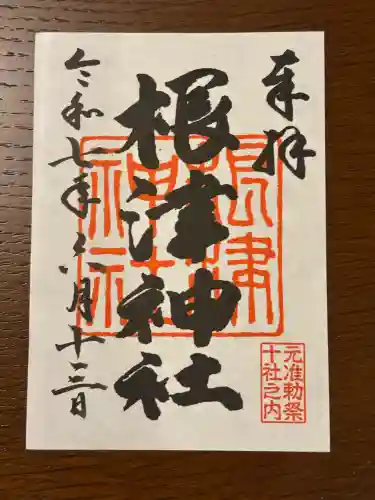 奉拝
根津神社
令和七年八月十三日
根津
神社
元准勅祭
十社之内